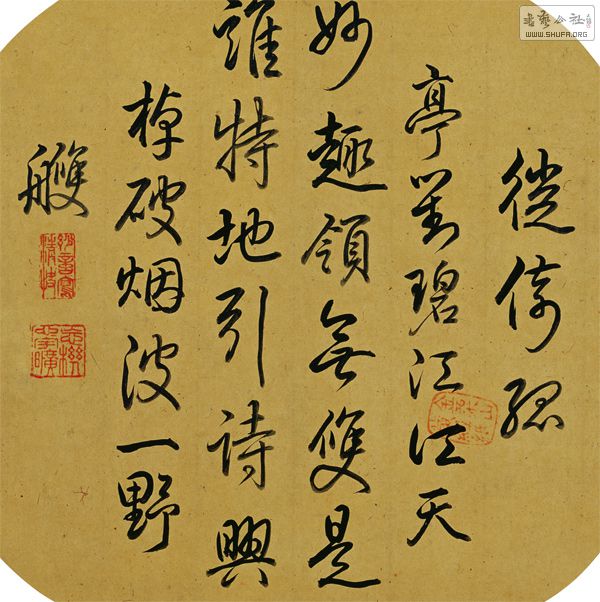 徙倚孤
亭對碧江江天
妙趣領無雙是
誰特地引詩興
棹破烟波一野
艭
書藝公社
WWW.SHUFA.ORG